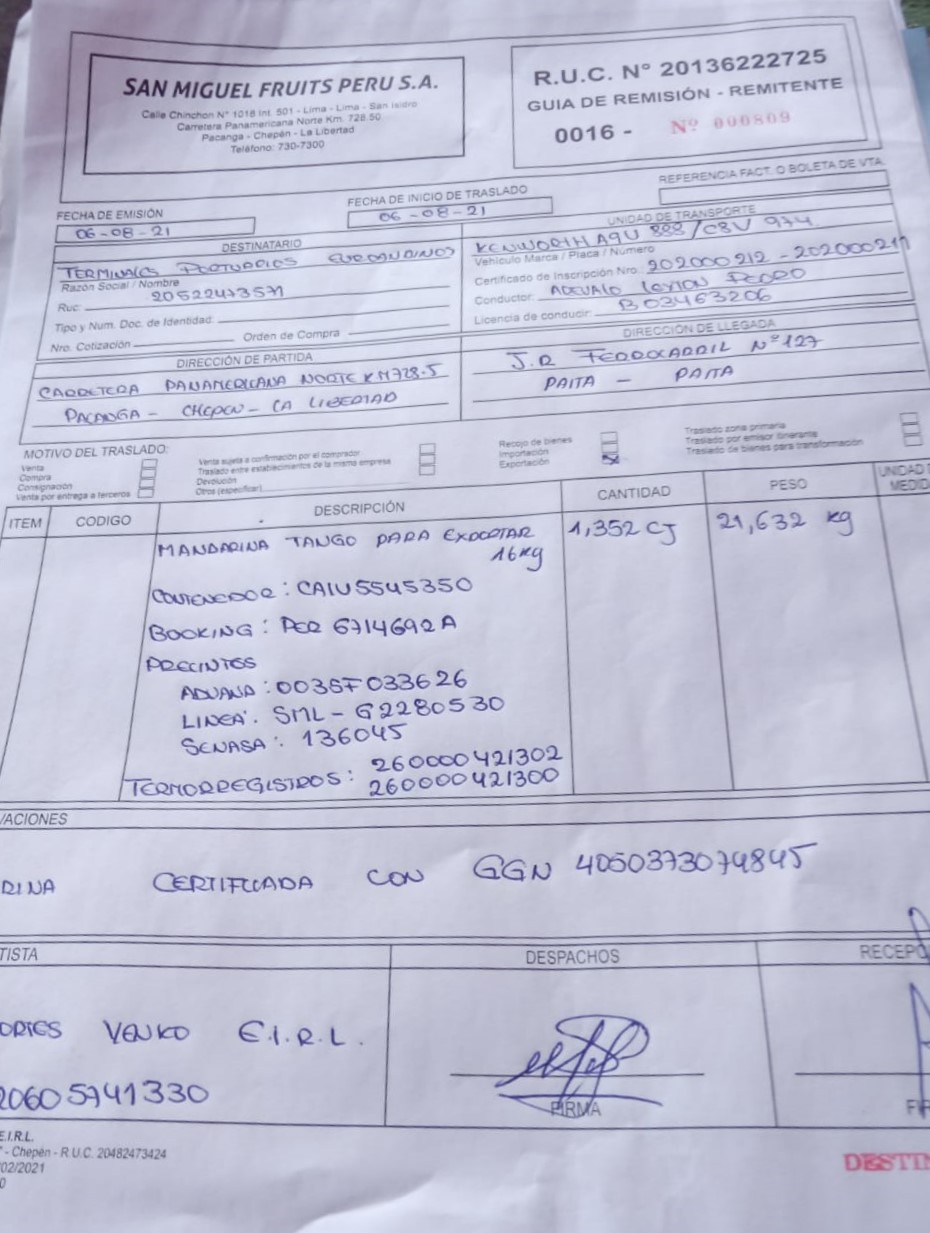 SAN MIGUEL FRUITS PERU S.A.
Calle Chinchon N° 1018 Int. 501 - Lima - Lima - San Isidro
Carretera Panamericana Norte Km. 728.50
Pacanga - Chepén - La Libertad
Teléfono: 730-7300
R.U.C. N° 20136222725
GUIA DE REMISIÓN - REMITENTE
0016 - Nº 000809
REFERENCIA FACT. O BOLETA DE VTA.
FECHA DE EMISIÓN
06-08-21
FECHA DE INICIO DE TRASLADO
06-08-21
DESTINATARIO
TERMINALES PORTUARIOS EUROANDINOS
Razón Social / Nombre
Ruc: 20522473571
Tipo y Num. Doc. de Identidad:
Nro. Cotización Orden de Compra
UNIDAD DE TRANSPORTE
KENWORTH A9U 888 / C8V 974
Vehículo Marca / Placa / Número
Certificado de Inscripción Nro.: 202000212 - 202000211
Conductor: PEDRO
Licencia de conducir: B03463206
DIRECCIÓN DE PARTIDA
CARRETERA PANAMERICANA NORTE KM728.5
PACANGA - CHEPEN - LA LIBERTAD
DIRECCIÓN DE LLEGADA
J.R FERROCARRIL Nº 127
PAITA - PAITA
MOTIVO DEL TRASLADO:
Venta
Compra
Consignación
Venta por entrega a terceros
Venta sujeta a confirmación por el comprador
Traslado entre establecimientos de la misma empresa
Devolución
Otros (especificar)
Recojo de bienes
Importación
Exportación
Traslado zona primaria
Traslado por emisor itinerante
Traslado de bienes para transformación
ITEM CODIGO DESCRIPCIÓN CANTIDAD PESO UNIDAD
MEDID
MANDARINA TANGO PARA EXPORTAR 1,352 CJ 21,632 kg
16kg
CONTENEDOR: CAIU5545350
BOOKING: PER 6714692A
PRECINTOS
ADUANA: 003SF033626
LINEA: SML-G2280530
SENASA: 136045
TERMORREGISTROS: 260000421302
260000421300
VACIONES
RINA CERTIFICADA CON GGN 4050373074845
TISTA
DESPACHOS
RECEPC
ORTES VENKO E.I.R.L.
20605741330
FIRMA
FI
E.I.R.L.
- Chepén - R.U.C. 20482473424
02/2021
0
DESTIN